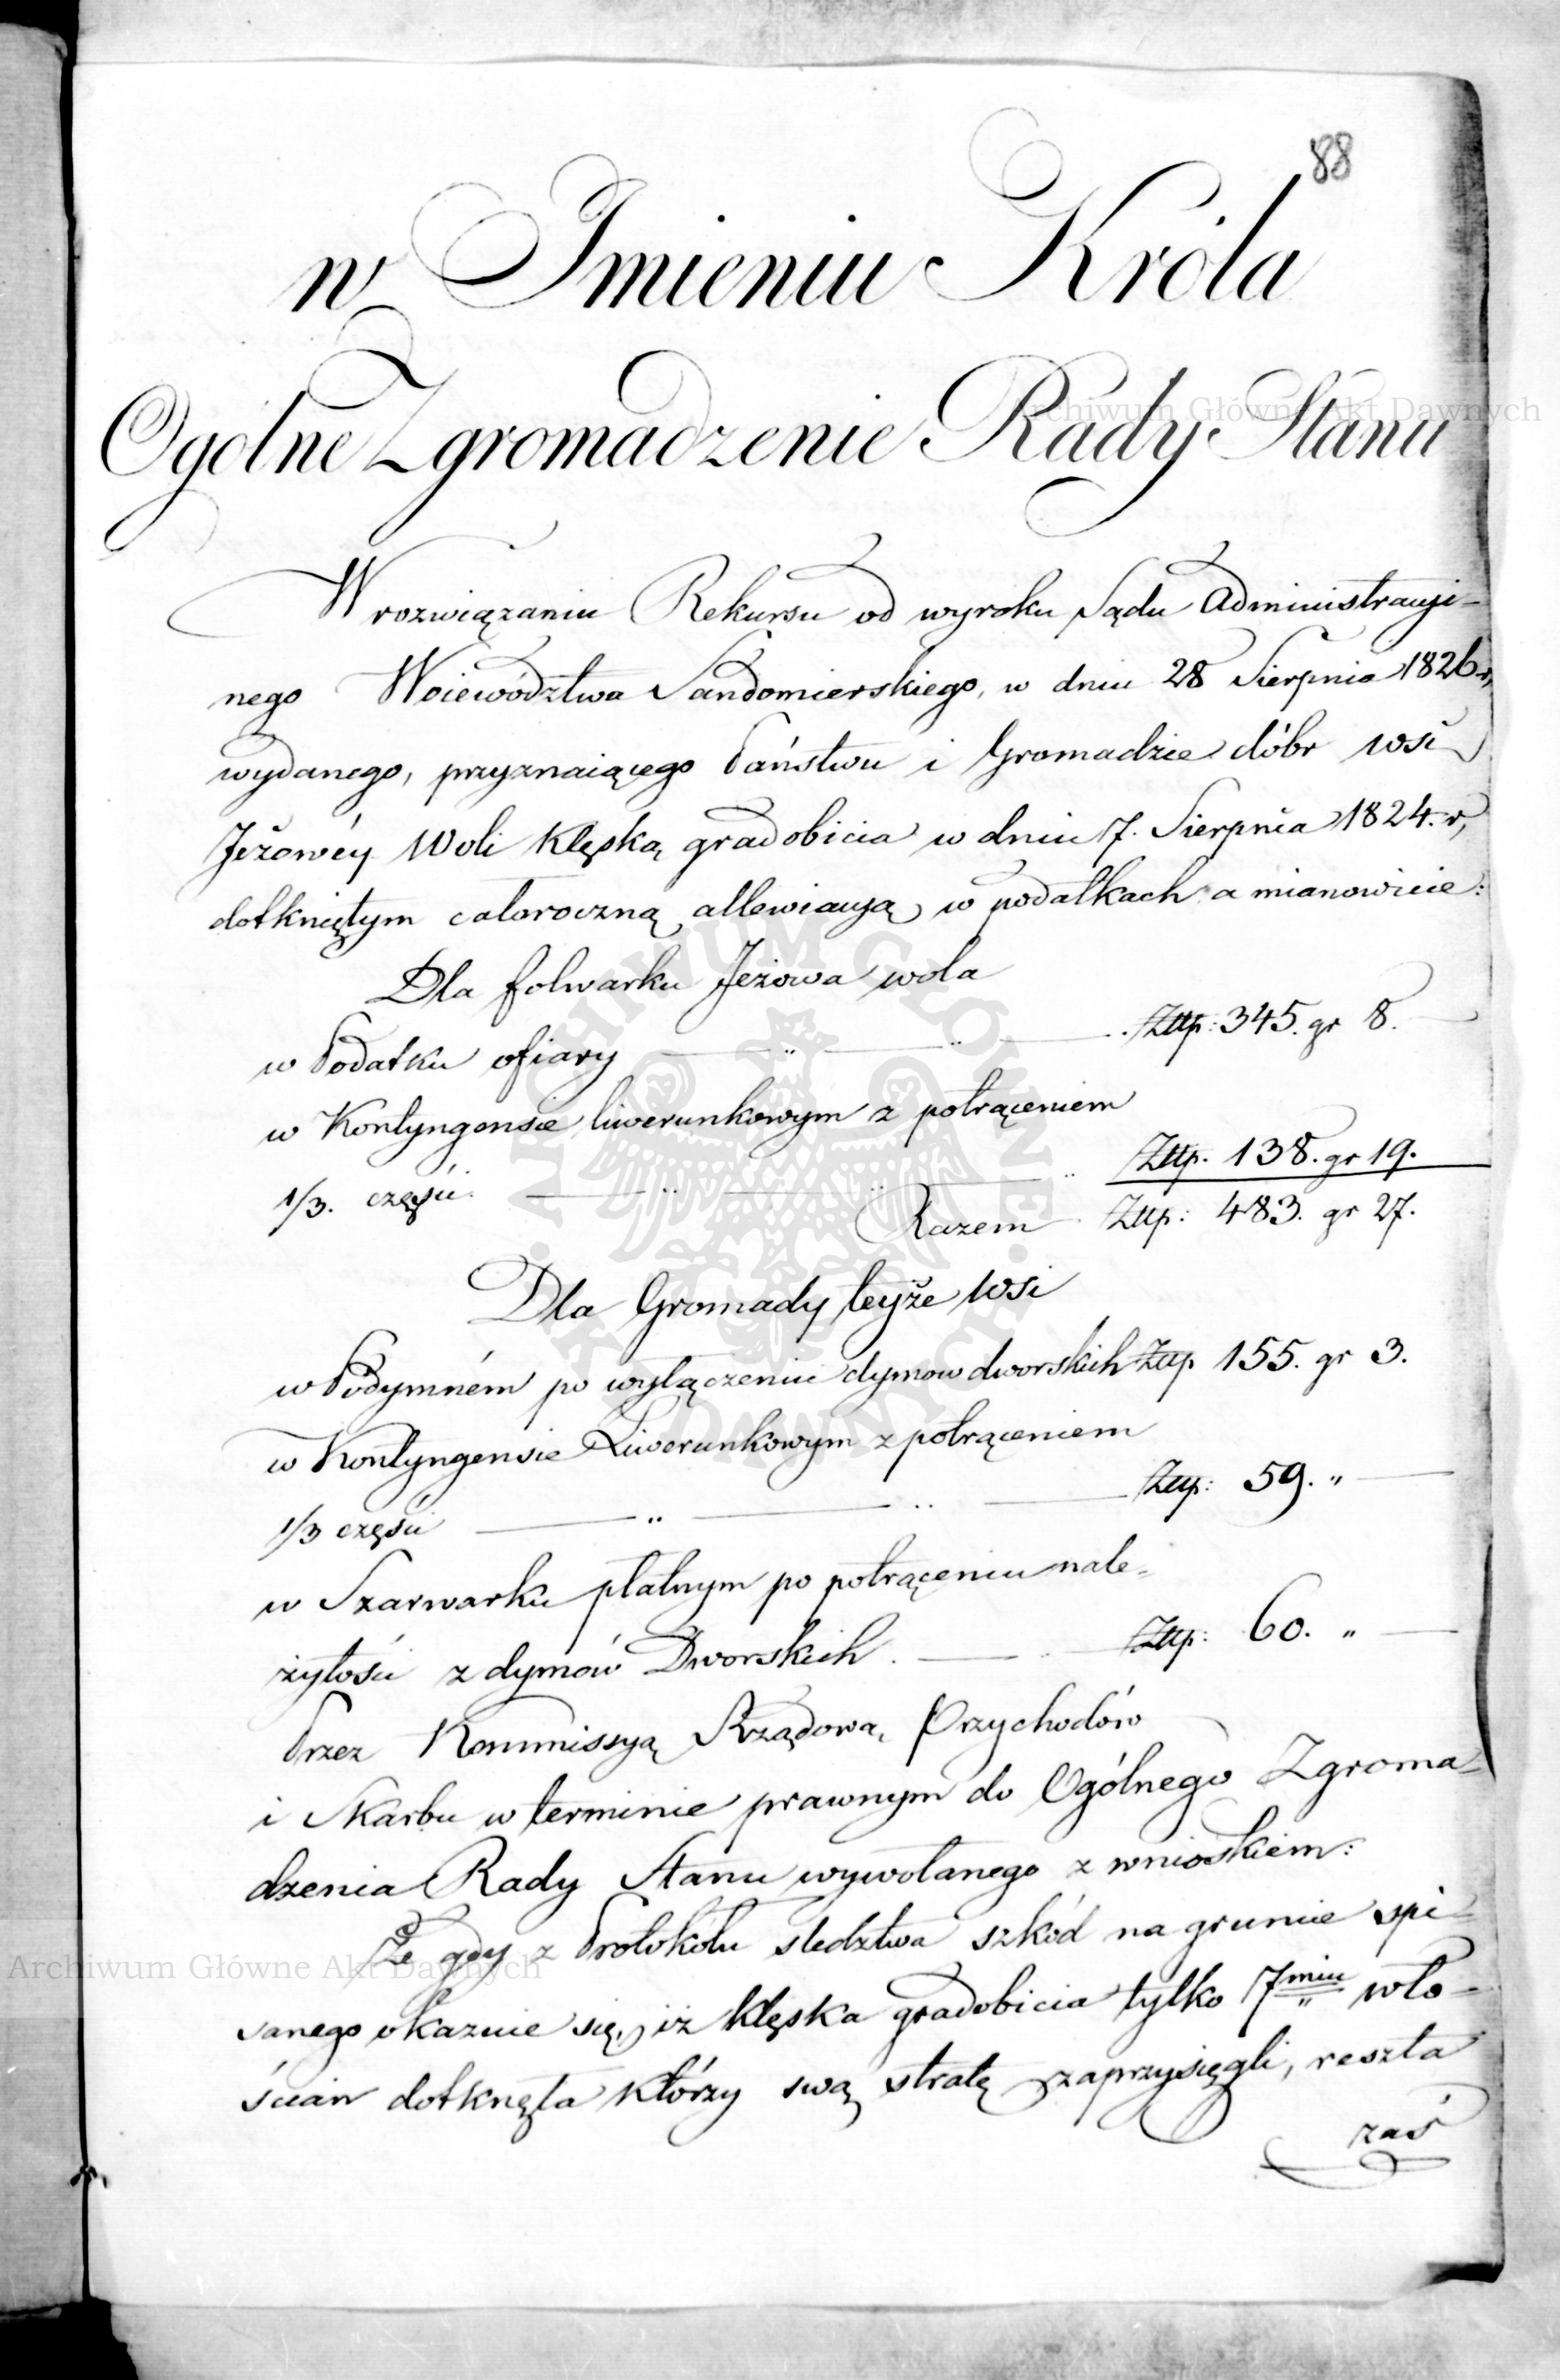 88
w Imieniu Króla
Ogolne Zgromadzenie Rady Stanu
W rozwiązaniu Rekursu od wyroku Sądu Administracyi-
nego Woiewództwa Sandomierskiego, w dniu 28 Sierpnia 1826 r,
wydanego, przyznaiącego Państwu i Gromadzie dóbr wsi
Jeżowéy Woli klęską gradobicia w dniu 7. Sierpnia 1824. r,
dotkniętym całoroczną allewiacyą w podatkach a mianowicie:
Dla folwarku Jeżowa wola
w Podatku ofiary — " — " — Złłp: 345. gr 8. —
w Kontyngensie liwerunkowym z potrąceniem
1/3. części. — " — " — " Złłp. 138. gr 19.
Razem Złłp: 483. gr 27.
Dla Gromady teyże wsi
w Podymném po wyłączeniu dymow dworskich Złłp 155. gr 3.
w Kontyngensie Liwerunkowym z potrąceniem
1/3 części — " — " — Złłp: 59. " —
w Szarwarku płatnym po potrąceniu nale=
żytości z dymów Dworskich. — Złłp: 60. " —
Przez Kommissyą Rządową Przychodów
i Skarbu w terminie prawnym do Ogólnego Zgroma=
dzenia Rady Stanu wywołanego z wnioskiem:
Że gdy z Protokółu śledztwa szkód na gruncie spi=
sanego okazuie się, iż klęska gradobicia tylko 7miu wło-
ścian dotknęła którzy swą stratę zaprzysięgli, reszta
zaś
Archiwum Główne Akt Dawnych
Archiwum Główne Akt Dawnych
ARCHIWUM GŁÓWNE AKT DAWNYCH